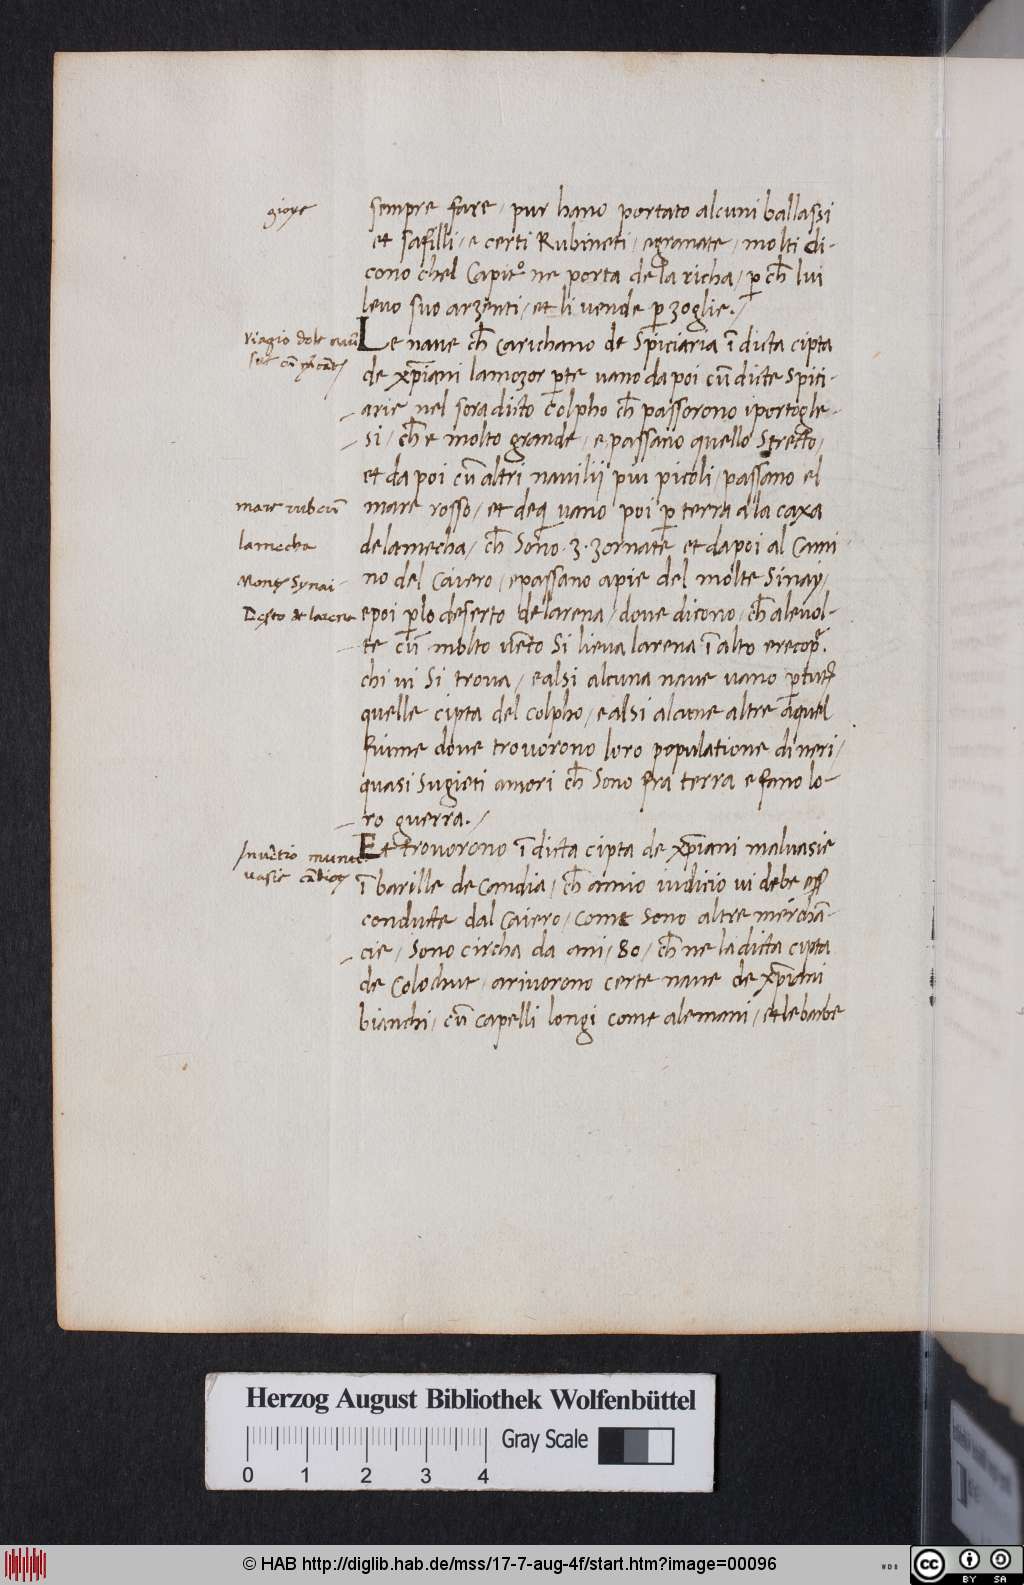 gioye
sempre fare / pur hano portato alcuni ballassi
et safilli / e certi Rubineti / egranate / molti di-
cono chel Capit° ne porta de la richa / p ch̄ lui
levo suo arzenti / et li vende p zoglie ./
Viagio dele
Le nave ch̄ carichano de Spiciaria ī dicta cipta
de xp̄iani lamozor pte vano da poi cū dicte Spiti-
arie nel soradicto colpho ch̄ passorono iportogle-
si / ch̄ e molto grande / e passano quello Stretto /
et da poi cū altri navilii piu picoli / passano el
mare rubrū
mare rosso / et deq vano poi p terra alla caxa
lamecha
delamecha / ch̄ Sono .3. zornate et da poi al Cami
Mons Synai
no del Caiero / e passano apie del mōte Sinay /
Desto de larena
e poi p lo deserto de larena / dove dicono / ch̄ ale vol-
te cū molto vēto Si lieva larena ī alto e recop
chi vi Si trova / e alsi alcuna nave vano p tute
quelle cipta del colpho / e alsi alcune altre a quel
fiume dove trovorono loro populatione di neri /
quasi Sugieti amori ch̄ Sono fra terra e fano lo-
ro guerra ./
Et trovorono ī dicta cipta de xp̄iani malvasie
ī barille de Candia / ch̄ amio iudicio vi debe eē
condutte dal Caiero / come Sono altre merchā-
cie / Sono circha da ani / 80 / ch̄ ne la dicta cipta
de Colochut / arivorono certe nave de xp̄iani
bianchi / cū capelli longi come alemani / et le barbe
Herzog August Bibliothek Wolfenbüttel
Gray Scale
0 1 2 3 4
© HAB http://diglib.hab.de/mss/17-7-aug-4f/start.htm?image=00096
WDB
cc BY SA